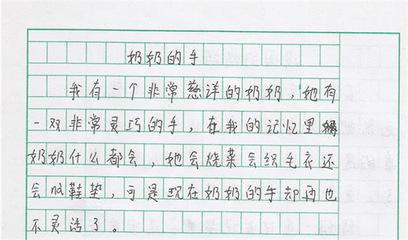 奶奶的手
我有一个非常慈洋的奶奶，她有
一双非常灵巧的手，在我的记忆里
奶奶什么都会，她会烧菜会织毛衣还
会做鞋垫，可是现在奶奶的手却再也
不灵活了。